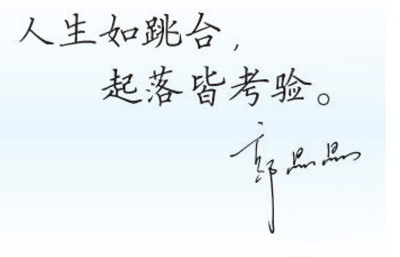 人生如跳台,
起落皆考验。
郭晶晶